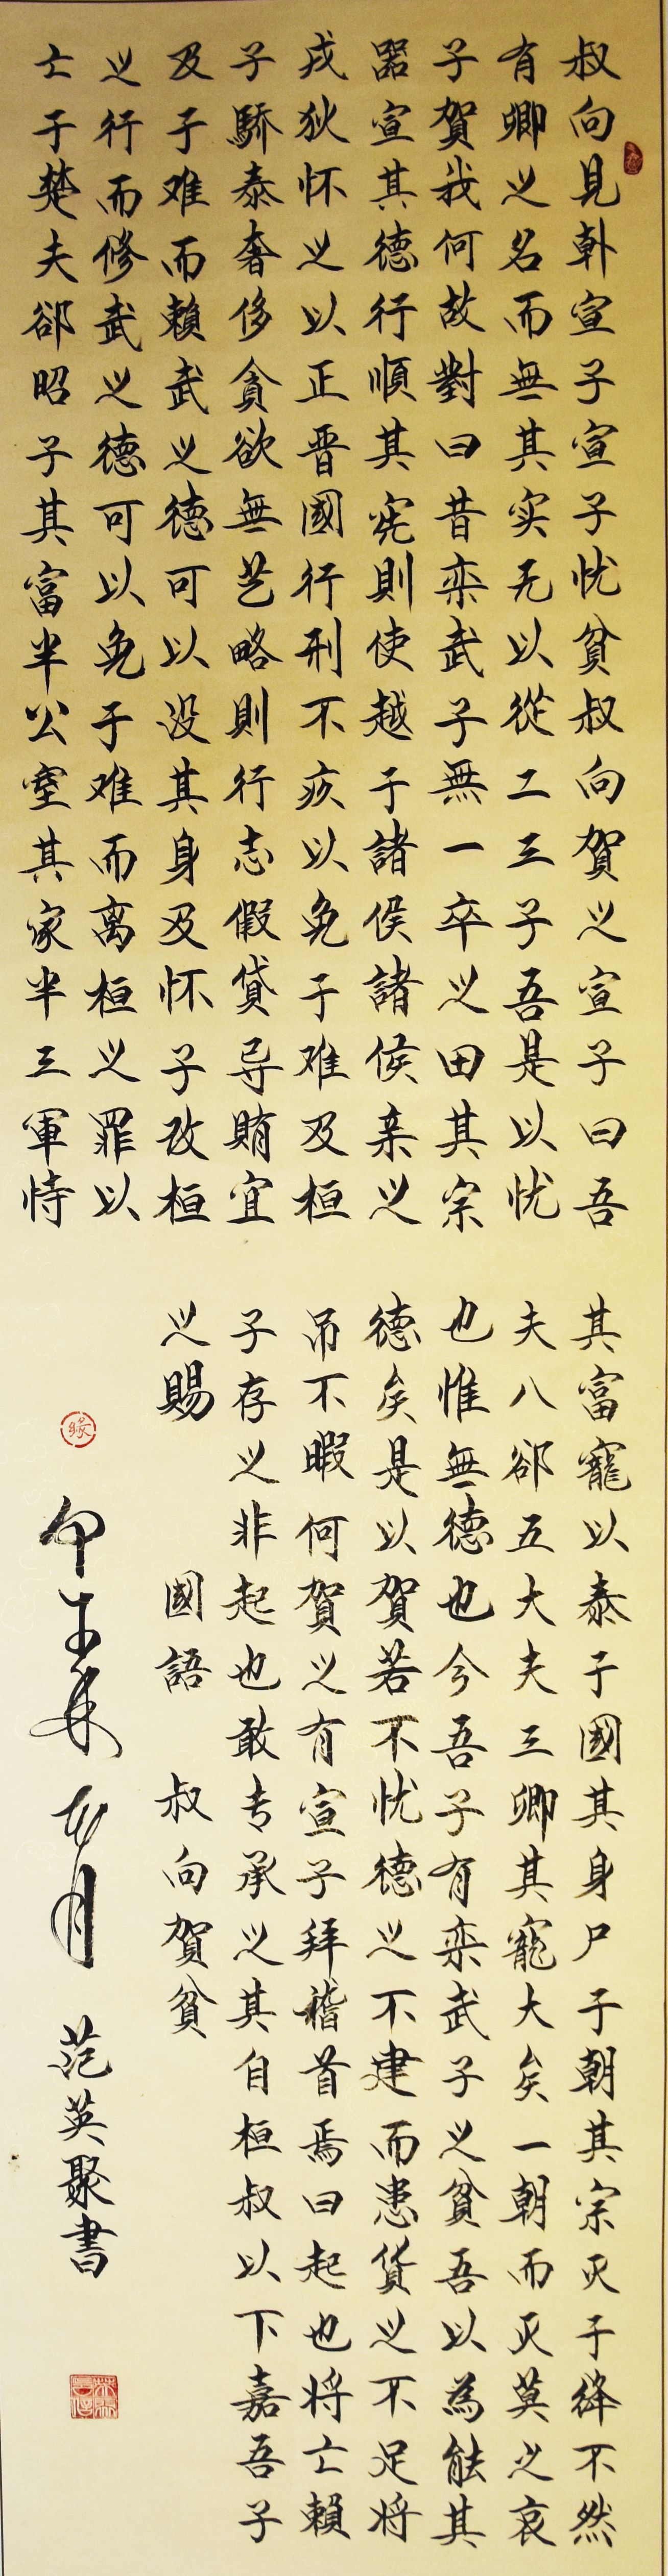 叔向見韩宣子宣子忧貧叔向賀之宣子曰吾
有卿之名而無其实无以從二三子吾是以忧
子賀我何故對曰昔栾武子無一卒之田其宗
器宣其德行順其宪則使越于諸侯諸侯亲之
戎狄怀之以正晋國行刑不疚以免于难及桓
子驕泰奢侈貪欲無艺略則行志假貸导賄宜
及于难而賴武之德可以没其身及怀子改桓
之行而修武之德可以免于难而离桓之罪以
亡于楚夫郤昭子其富半公室其家半三軍恃
其富寵以泰于國其身尸于朝其宗灭于绛不然
夫八郤五大夫三卿其寵大矣一朝而灭莫之哀
也惟無德也今吾子有栾武子之貧吾以為能其
德矣是以賀若不忧德之不建而患貨之不足将
吊不暇何賀之有宣子拜稽首焉曰起也将亡賴
子存之非起也敢专承之其自桓叔以下嘉吾子
之賜 國語 叔向賀貧
甲午年 月 范英聚書
缘